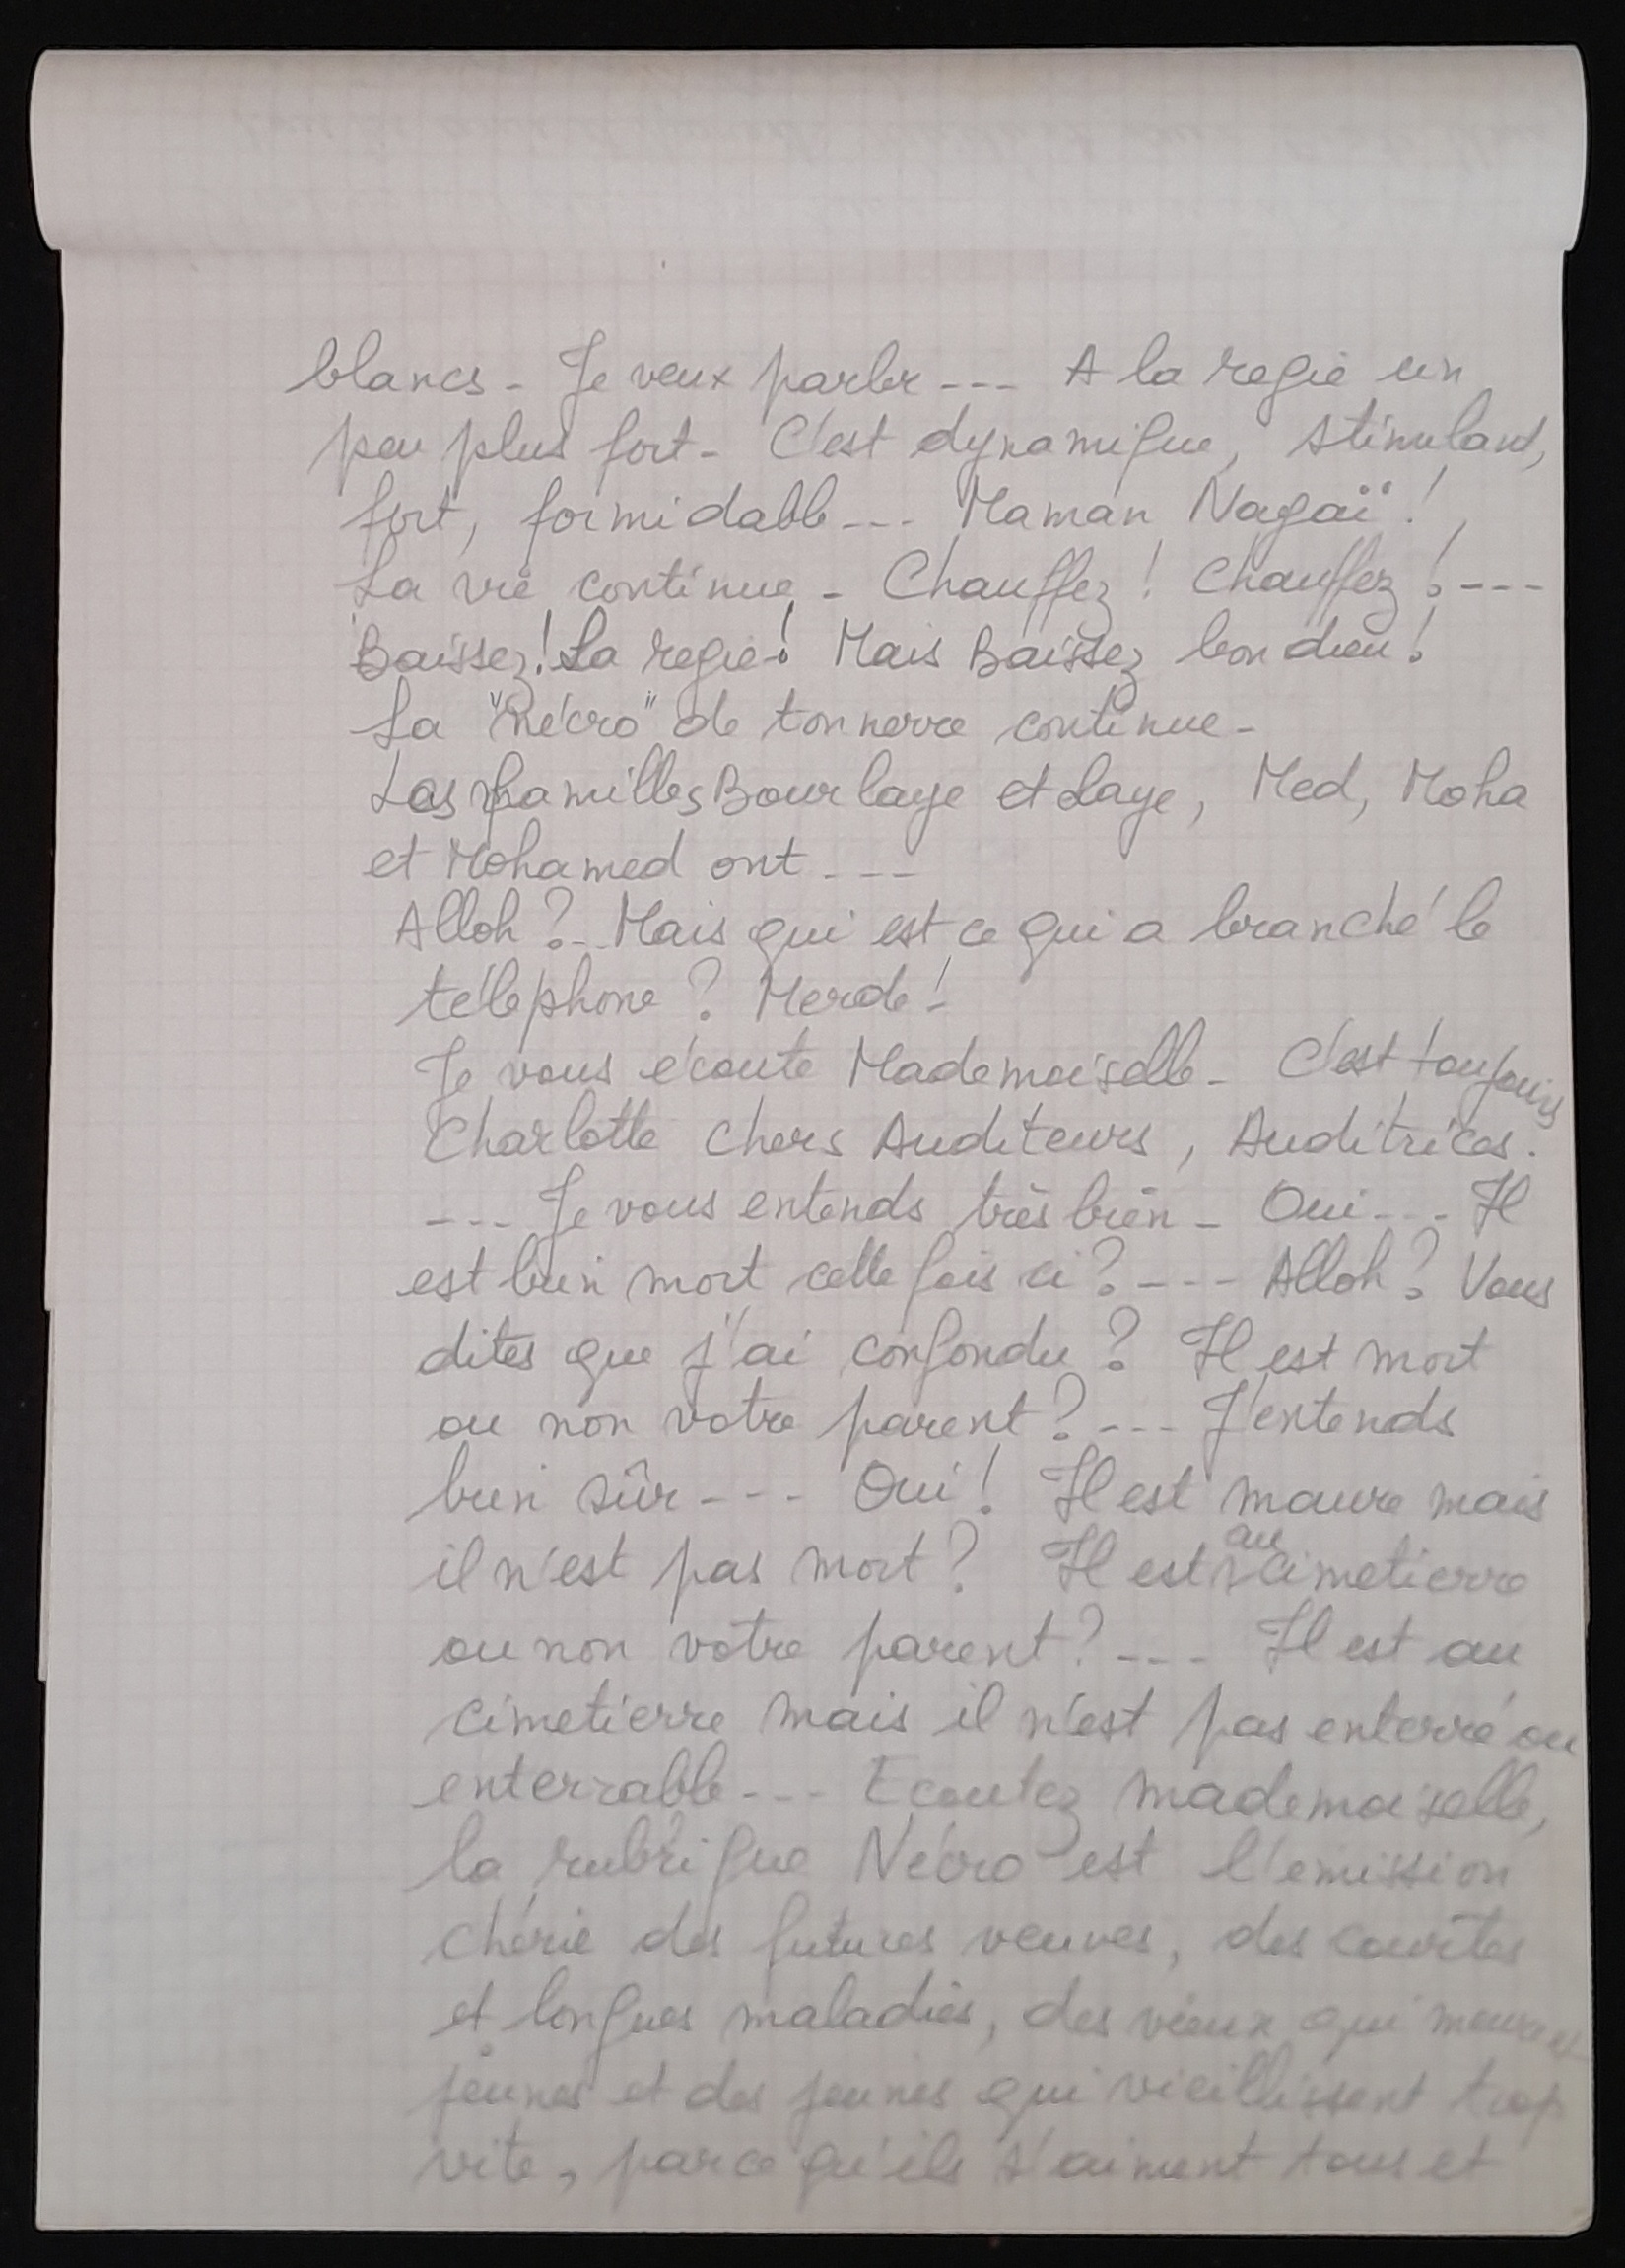 blancs - Je veux parler --- A la regie un
peu plus fort - C'est dynamique, stimulant,
fort, formidable --- Maman Nagaï !
La vie continue - Chauffez ! Chauffez ! ---
Baissez ! La regie ! Mais Baissez bon dieu !
La "nécro" de tonnerre continue -
Les familles Bour laye et Laye, Med, Moha
et Mohamed ont ---
Alloh ? -- Mais qui est ce qui a branché le
téléphone ? Merde !
Je vous écoute Mademoiselle - C'est toujours
Charlotte chers Auditeurs, Auditrices.
--- Je vous entends très bien - Oui --- Il
est bien mort cette fois ci ? --- Alloh ? Vous
dites que j'ai confondu ? Il est mort
ou non votre parent ? --- J'entends
bien sûr --- Oui ! Il est maure mais
il n'est pas mort ? Il est au cimetierre
ou non votre parent ? --- Il est au
cimetierre mais il n'est pas enterré ou
enterrable --- Ecoutez mademoiselle,
la rubrique Nécro est l'emission
chérie des futures veuves, des courtes
et longues maladies, des vieux qui meurent
jeunes et des jeunes qui vieillissent trop
vite, parce qu'ils s'aiment tous et